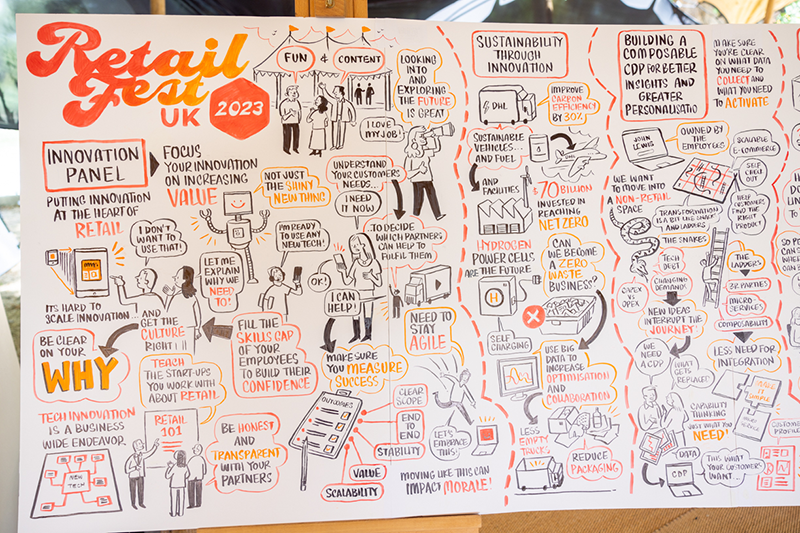 Retail
Fest
UK
2023
FUN & CONTENT
LOOKING
INTO AND
EXPLORING
THE FUTURE
IS GREAT
I LOVE
MY JOB!
INNOVATION
PANEL
FOCUS
YOUR INNOVATION
ON INCREASING
VALUE
PUTTING INNOVATION
AT THE HEART OF
RETAIL
I DON'T
WANT TO
USE THAT!
NOT JUST
THE SHINY
NEW THING
UNDERSTAND YOUR
CUSTOMERS
NEEDS...
I NEED
IT NOW
...TO DECIDE
WHICH PARTNERS
CAN HELP TO
FULFIL THEM
I'M READY
TO USE ANY
NEW TECH!
LET ME
EXPLAIN
WHY WE
NEED
TO!
OK!
I CAN
HELP!
NEED TO
STAY
AGILE
IT'S HARD TO
SCALE INNOVATION
AND
GET THE
CULTURE
RIGHT!
FILL THE
SKILLS GAP
OF YOUR
EMPLOYEES
TO BUILD THEIR
CONFIDENCE
BE CLEAR
ON YOUR
WHY
TEACH
THE START-UPS
YOU WORK WITH
ABOUT RETAIL
MAKE SURE
YOU MEASURE
SUCCESS
TECH INNOVATION
IS A BUSINESS
WIDE ENDEAVOR.
NEW
TECH
RETAIL
101
BE HONEST
AND
TRANSPARENT
WITH YOUR
PARTNERS
OUTCOMES
CLEAR
SCOPE
END TO
END
STABILITY
VALUE
SCALABILITY
LET'S
EMBRACE
THIS!
MOVING LIKE THIS CAN
IMPACT MORALE!
SUSTAINABILITY
THROUGH
INNOVATION
DHL
IMPROVE
CARBON
EFFICIENCY
BY 30%
SUSTAINABLE
VEHICLES...
AND FUEL
DHL
AND
FACILITIES
$70 BILLION
INVESTED IN
REACHING
NET ZERO
HYDROGEN
POWER CELLS
ARE THE FUTURE
H
CAN WE
BECOME A
ZERO
WASTE
BUSINESS?
SELF
CHARGING
USE BIG
DATA TO
INCREASE
OPTIMISATION
AND
COLLABORATION
LESS
EMPTY
TRUCKS
REDUCE
PACKAGING
BUILDING A
COMPOSABLE
CDP FOR BETTER
INSIGHTS AND
GREATER
PERSONALISATIO
MAKE SURE
YOU'RE CLEAR
ON WHAT DATA
YOU NEED TO
COLLECT AND
WHAT YOU NEED
TO ACTIVATE
JOHN
LEWIS
OWNED BY THE
EMPLOYEES
SCALABLE
E-COMMERCE
SELF
CHECK OUT
WE WANT TO
MOVE INTO
A NON-RETAIL
SPACE
HELP
CUSTOMERS
FIND THE
RIGHT
PRODUCT
TRANSFORMATION
IS A BIT LIKE SNAKES
AND LADDERS
THE SNAKES
THE
LADDERS
TECH
DEBT
CAPEX
VS
OPEX
CHANGING
DEMANDS
3RD PARTIES
MICRO-
SERVICES
COMPOSABILITY
NEW IDEAS
INTERRUPT THE
JOURNEY!
LESS NEED FOR
INTEGRATION
WE
NEED A
CDP
WHAT
GETS
REPLACED?
CAPABILITY
THINKING
JUST WHAT YOU
NEED!
CUSTOMER
PROFILE
DATA
CDP
THIS IS WHAT
YOUR CUSTOMERS
WANT...